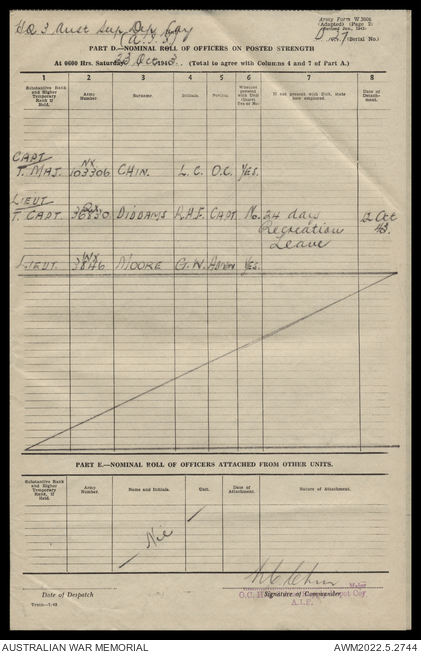 HQ 3 Aust Sup Dep Coy
(AIF)
Army Form W 3008
(Adapted) (Page 2)
(Revised Jan., 1943)
(Serial No.)
PART D.—NOMINAL ROLL OF OFFICERS ON POSTED STRENGTH
At 0600 Hrs. Saturday 23 Oct 1943. (Total to agree with Columns 4 and 7 of Part A.)
1 2 3 4 5 6 7 8
Substantive Rank and Higher Temporary Rank if Held. Army Number. Surname. Initials. Posting. Whether present with Unit (Insert Yes or No) If not present with Unit, state how employed. Date of Detachment.
CAPT NX
T. MAJ. 103306 CHIN. L.C. O.C. YES.
LIEUT QX
T. CAPT. 36830 DIDDAMS R.A.F. CAPT No. 24 days 12 Oct
Recreation 43.
Leave
LIEUT. 3846 MOORE G.W. ADMN YES.
PART E.—NOMINAL ROLL OF OFFICERS ATTACHED FROM OTHER UNITS.
Substantive Rank and Higher Temporary Rank, if Held. Army Number. Name and Initials. Unit. Date of Attachment. Nature of Attachment.
Nil
Major
Date of Despatch Signature of Commander
O.C. Depot Coy
A.I.F.
AUSTRALIAN WAR MEMORIAL AWM2022.5.2744